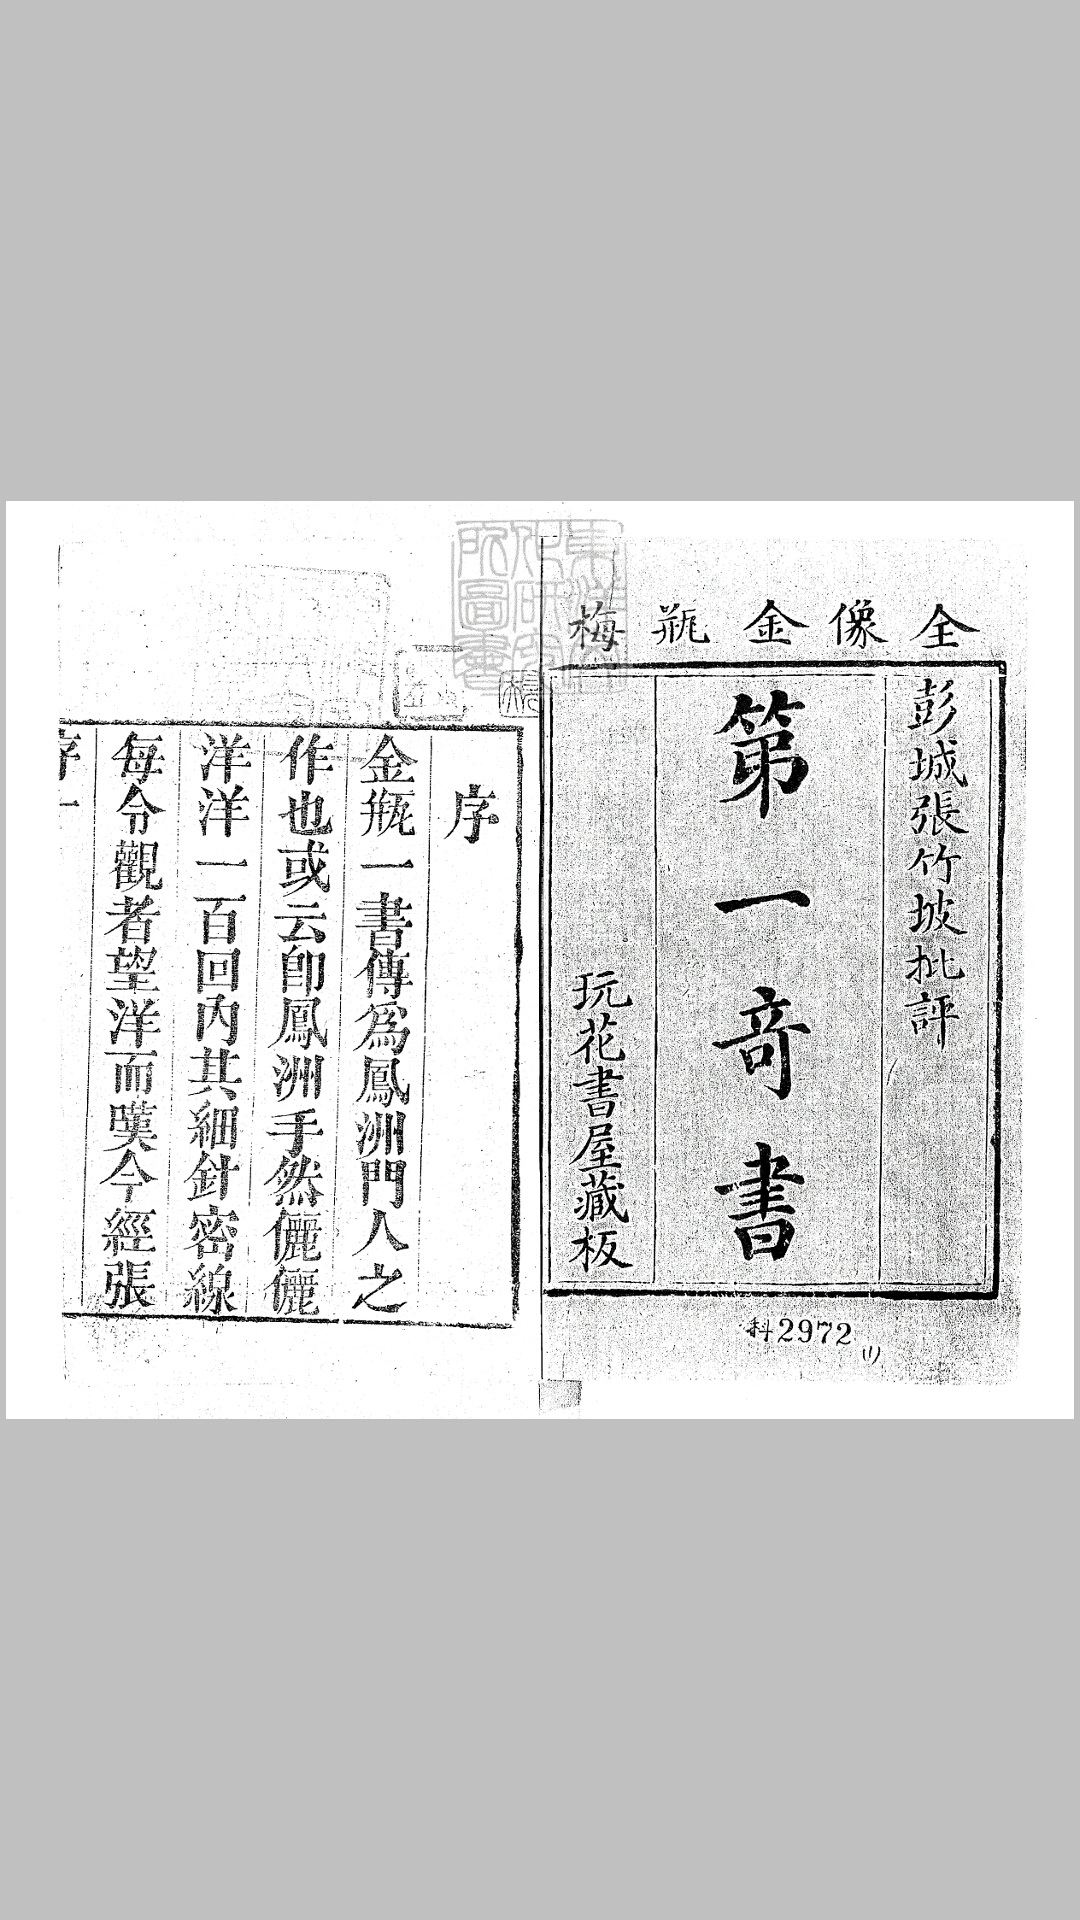 全像金瓶梅
彭城張竹坡批評
第一竒書
玩花書屋藏板
科2972
(1)
序
金瓶一書傳為鳳洲門人之
作也或云卽鳳洲手然儷儷
洋洋一百回内其細針密線
每令觀者望洋而嘆今經張
序一